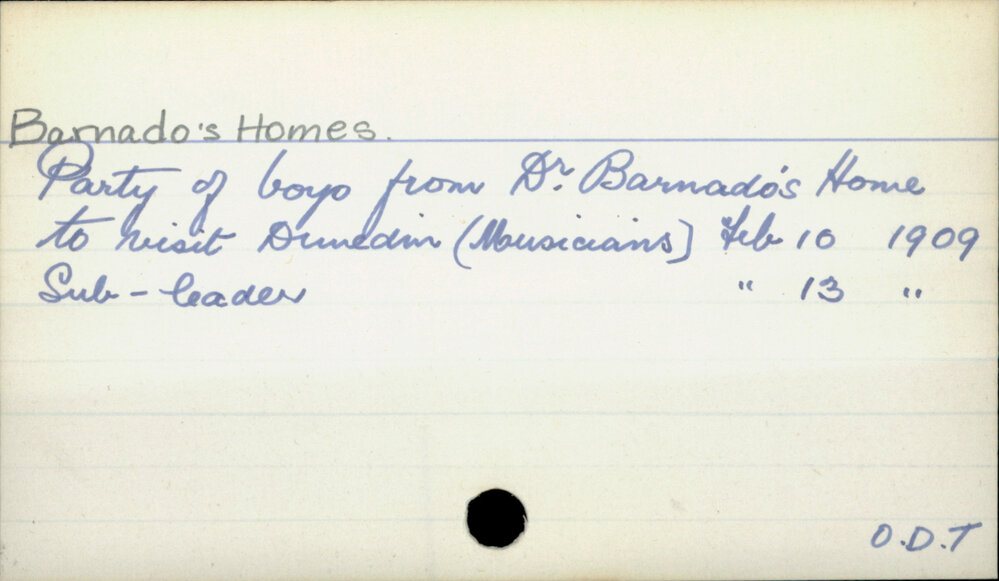 Barnado's Homes.
Party of boys from Dr. Barnado's Home
to visit Dunedin (Musicians) Feb 10 1909
Sub-leader " 13 "
O.D.T